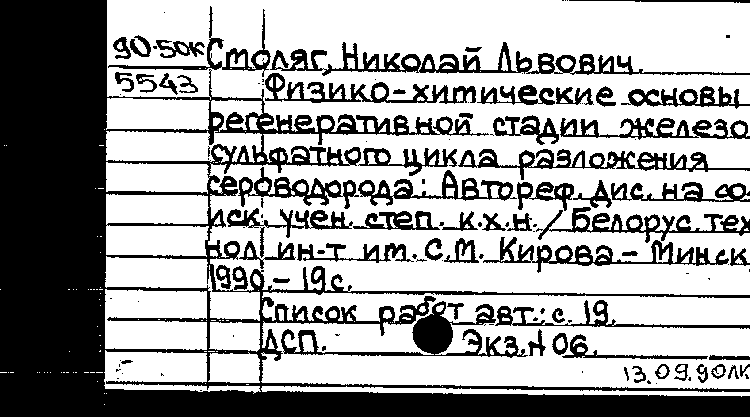 90-50к Столяг, Николай Львович.
5543 Физико-химические основы
регенеративной стадии железо
сульфатного цикла разложения
сероводорода: Автореф. дис. на со-
иск. учен. степ. к.х.н. / Белорус. тех
нол. ин-т им. С.М. Кирова.- Минск
1990.- 19 с.
Список работ авт.: с. 19.
ДСП. Экз. N 06.
13.09.90ЛК